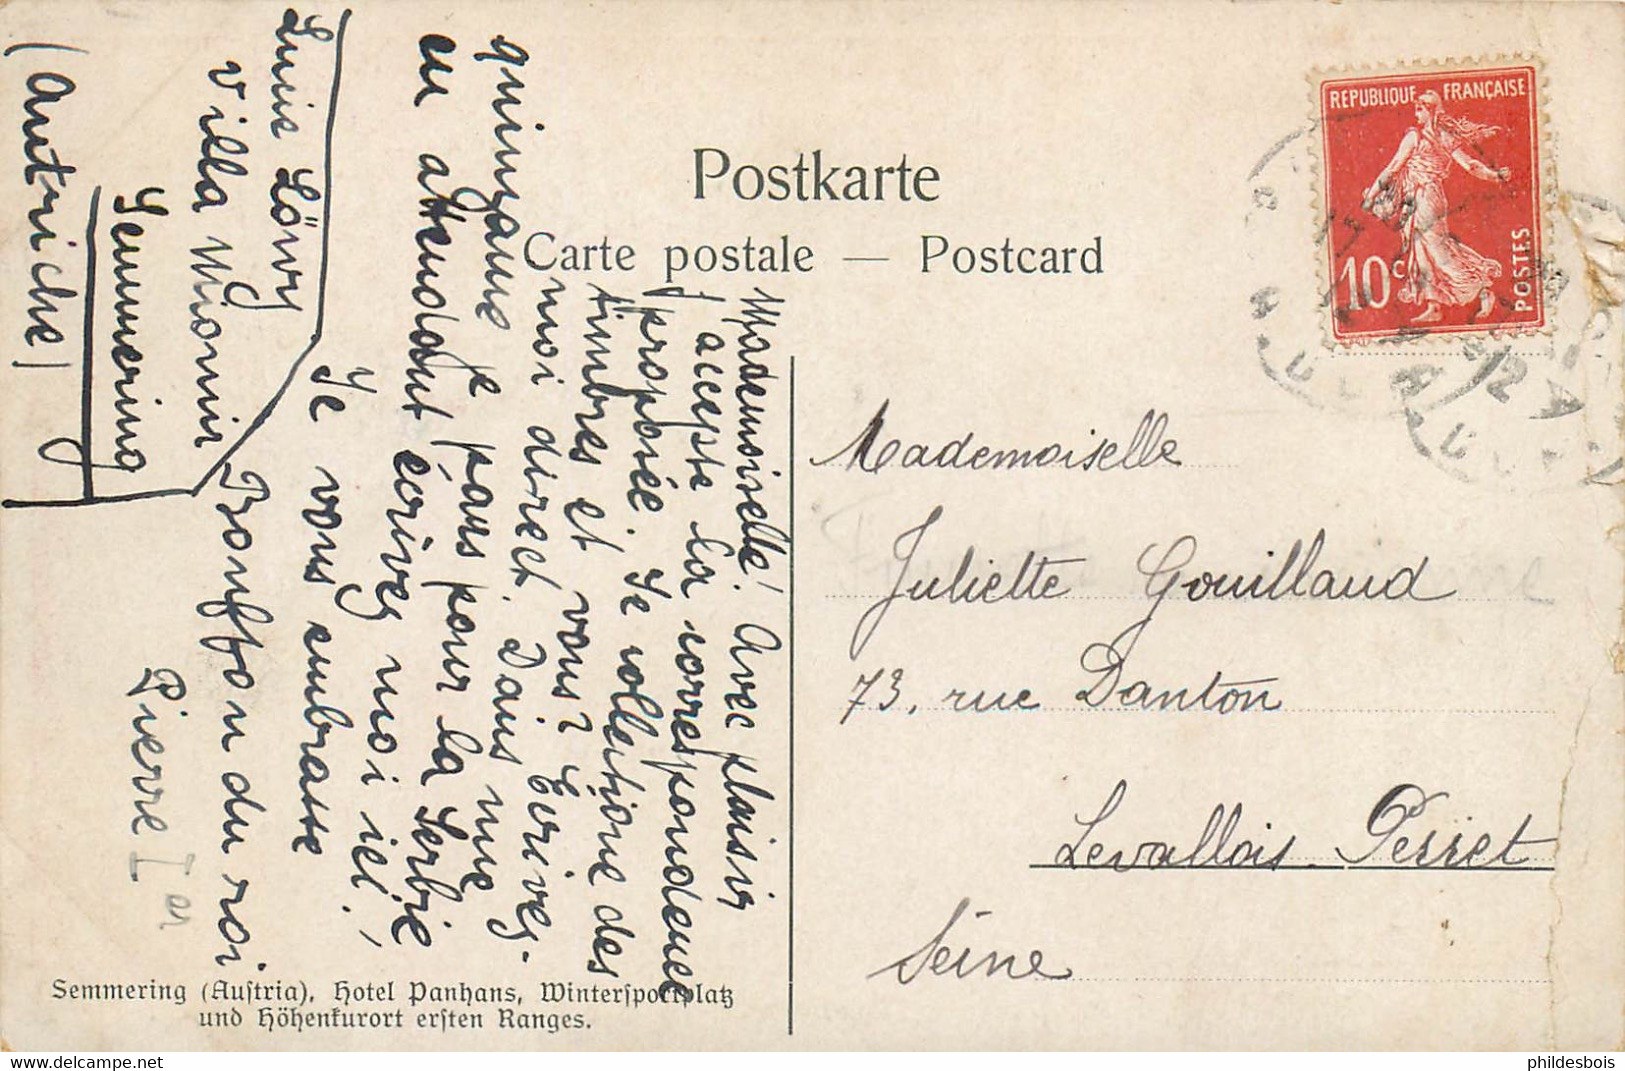 Postkarte
Carte postale — Postcard
REPUBLIQUE FRANÇAISE
10c
POSTES
Mademoiselle! Avec plaisir
j'accepte la correspondence
proposée. Je collectione des
timbres et vous? Ecrivez-
moi direct. Dans une
quinzaine je pars pour la Serbie
en attendant écrivez moi ici!
Je vous embrasse
Bonffon du roi
Pierre I er
Löwy
villa Miomir
Semmering
(Autriche)
Mademoiselle
Juliette Gouillaud
73, rue Danton
Levallois-Perret
Seine
Semmering (Auſtria), Hotel Panhans, Winterſportplatz
und Höhenkurort erſten Ranges.
phildesbois